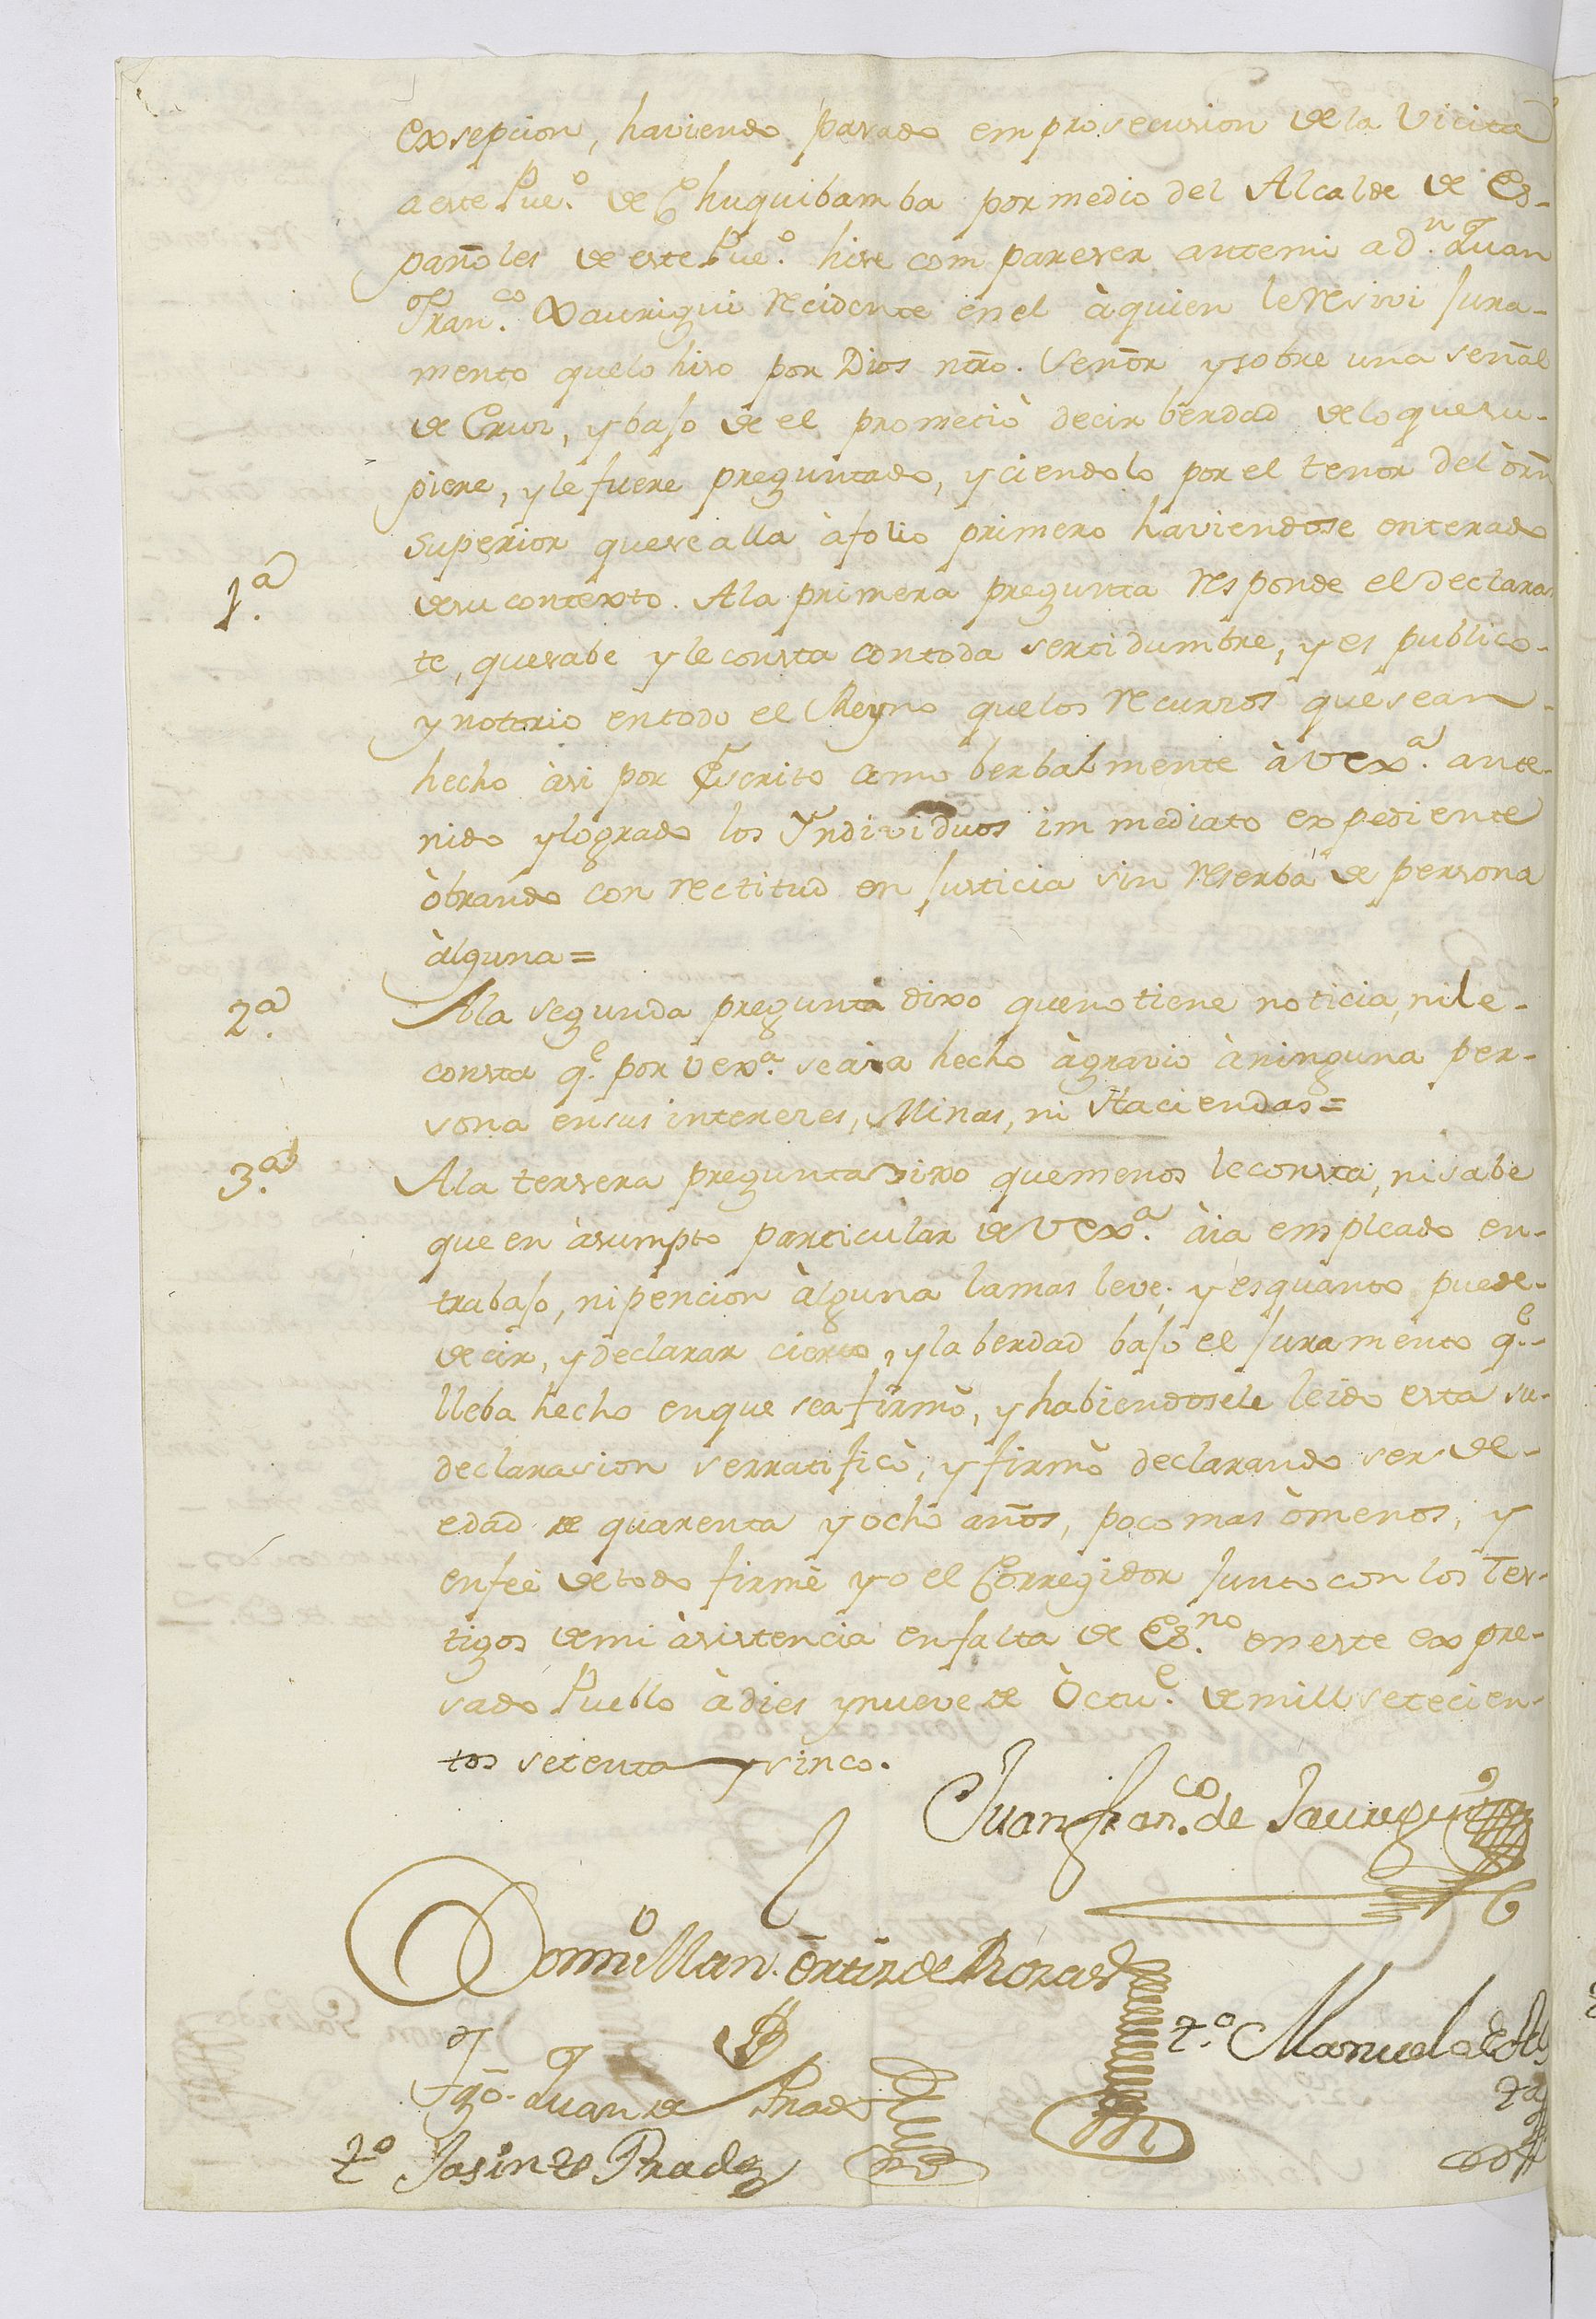 exsepcion, haviendo pasado em prosecusion de la Vicita
a este Pueº. de Chuquibamba por medio del Alcalde de Es-
pañoles de este Pueº. hise compareser antemi a Dn. Juan
Franco. Xaurigui recidente en el à quien le resivi Jura-
mento que lo hiso por Dios ntro. Señor y sobre una señal
de Crus, y bajo de el prometiò decir berdad de lo que su-
piere, y le fuere preguntado, y ciendolo por el tenor del òrn
Superior que se alla à folio primero haviendose enterado
1.ª de su contexto. A la primera pregunta responde el Declaran
te, que sabe y le consta con toda sertidumbre, y es publico-
y notorio en todo el Reyno que los recursos que sean-
hecho àsi por Escrito como berbalmente à VExª. an te-
nido y logrado los Yndividuos immediato expediente
òbrando con rectitud en Justicia sin reserba de persona
àlguna=
2.ª A la segunda pregunta dixo que no tiene noticia, ni le-
consta q.e por Vexª. se àia hecho àgravio à ninguna per-
sona en sus intereses, Minas, ni Haciendas=
3.ª A la tersera pregunta dixo que menos le consta, ni sabe
que en àsumpto particular de VExª. àia empleado en-
trabajo, ni pencion àlguna la mas leve; y es quanto puede-
decir, y declarar cierto, y la berdad bajo el Juramento q.e-
lleba hecho en que se afirmò, y habiendosele leido esta su-
declarasion se rratificò, y firmò declarando ser de-
edad de quarenta y ocho años, poco mas òmenos, y
en feè de todo firmè yo el Corregidor Junto con los Tes-
tigos de mi àsistencia en falta de Es.no en este expre-
sado Pueblo à dies y nueve de Octu.e de mill setecien-
tos setenta y sinco.
Juan Fran.co de Jauregui
Domº Man. Ortiz de Rozas
t.º Manuel
Tgo. Juan de Prado
t.º Jasinto Prado